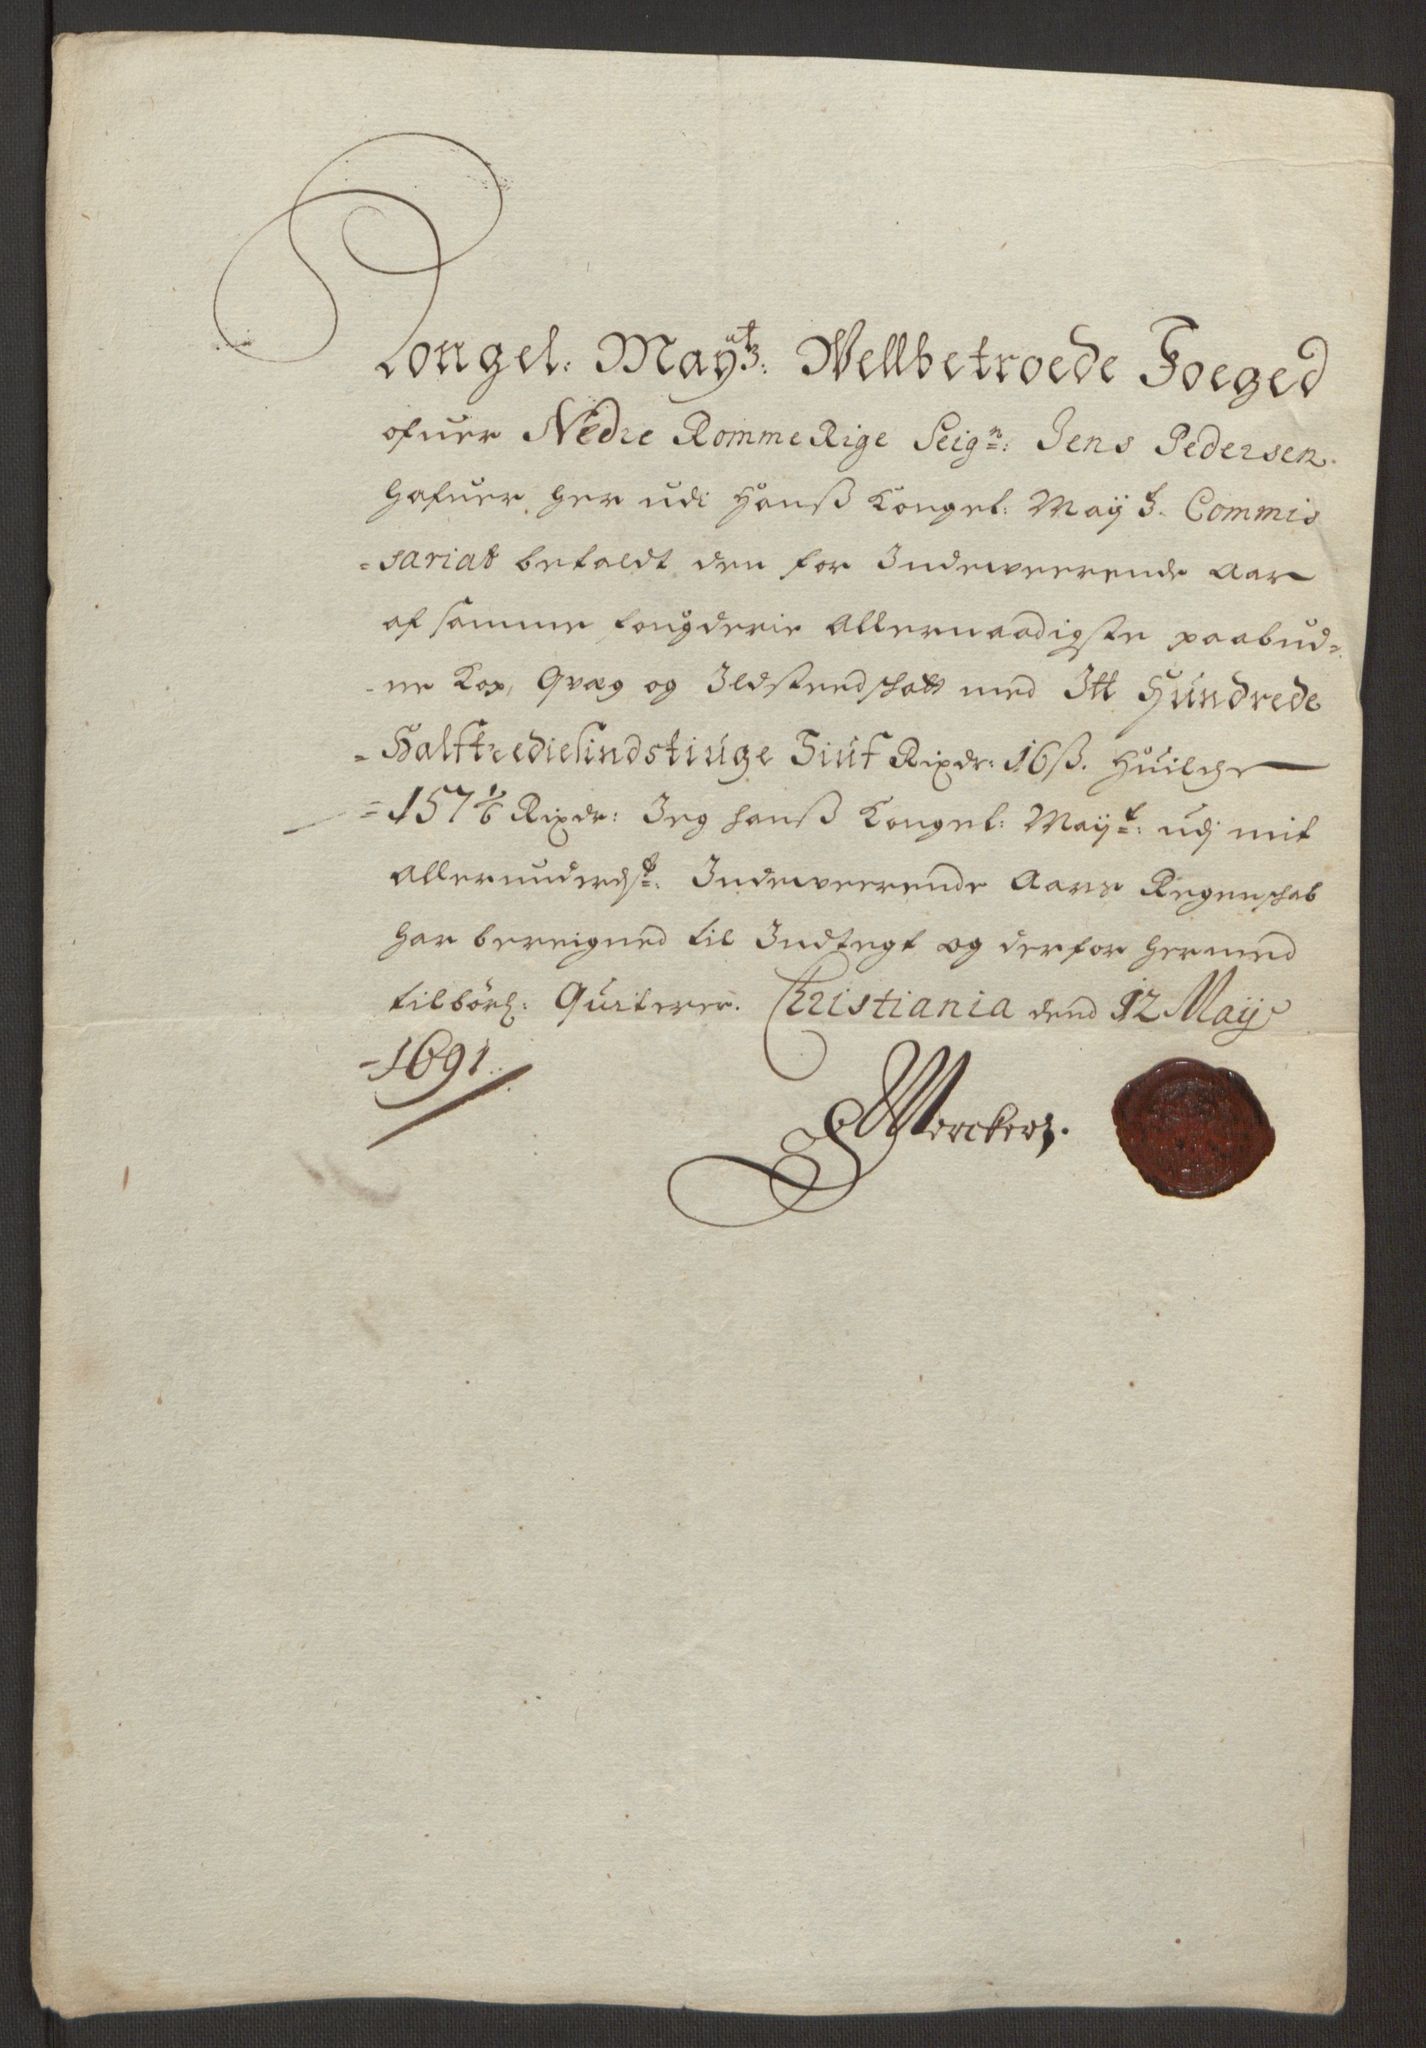 Kongel: Maytz: Wellbetroede Foeged
ofuer Nedre Romme Rige Seign: Jens Pedersen
hafuer her udi Hans Kongel: Mayts. Commis
-sariat betaldt den for Indeweerende Aar
af samme fougderie Allernaadigste paabud-
-ne Kop, Qvæg og Ildstædschatt med Itt Hundrede
Halftrediesindstiuge Siuf Rixdr: 16ß. Huilche
157 1/6 Rixdr: Jeg hanß Kongel: Mayt: udj mit
Allerunderdst: Indeweerende Aars Regenschab
har bereigned til Indtegt og derfor hermed
tilbörl: Quiterer. Christiania dend 12 Maij
1691.
Merckers.